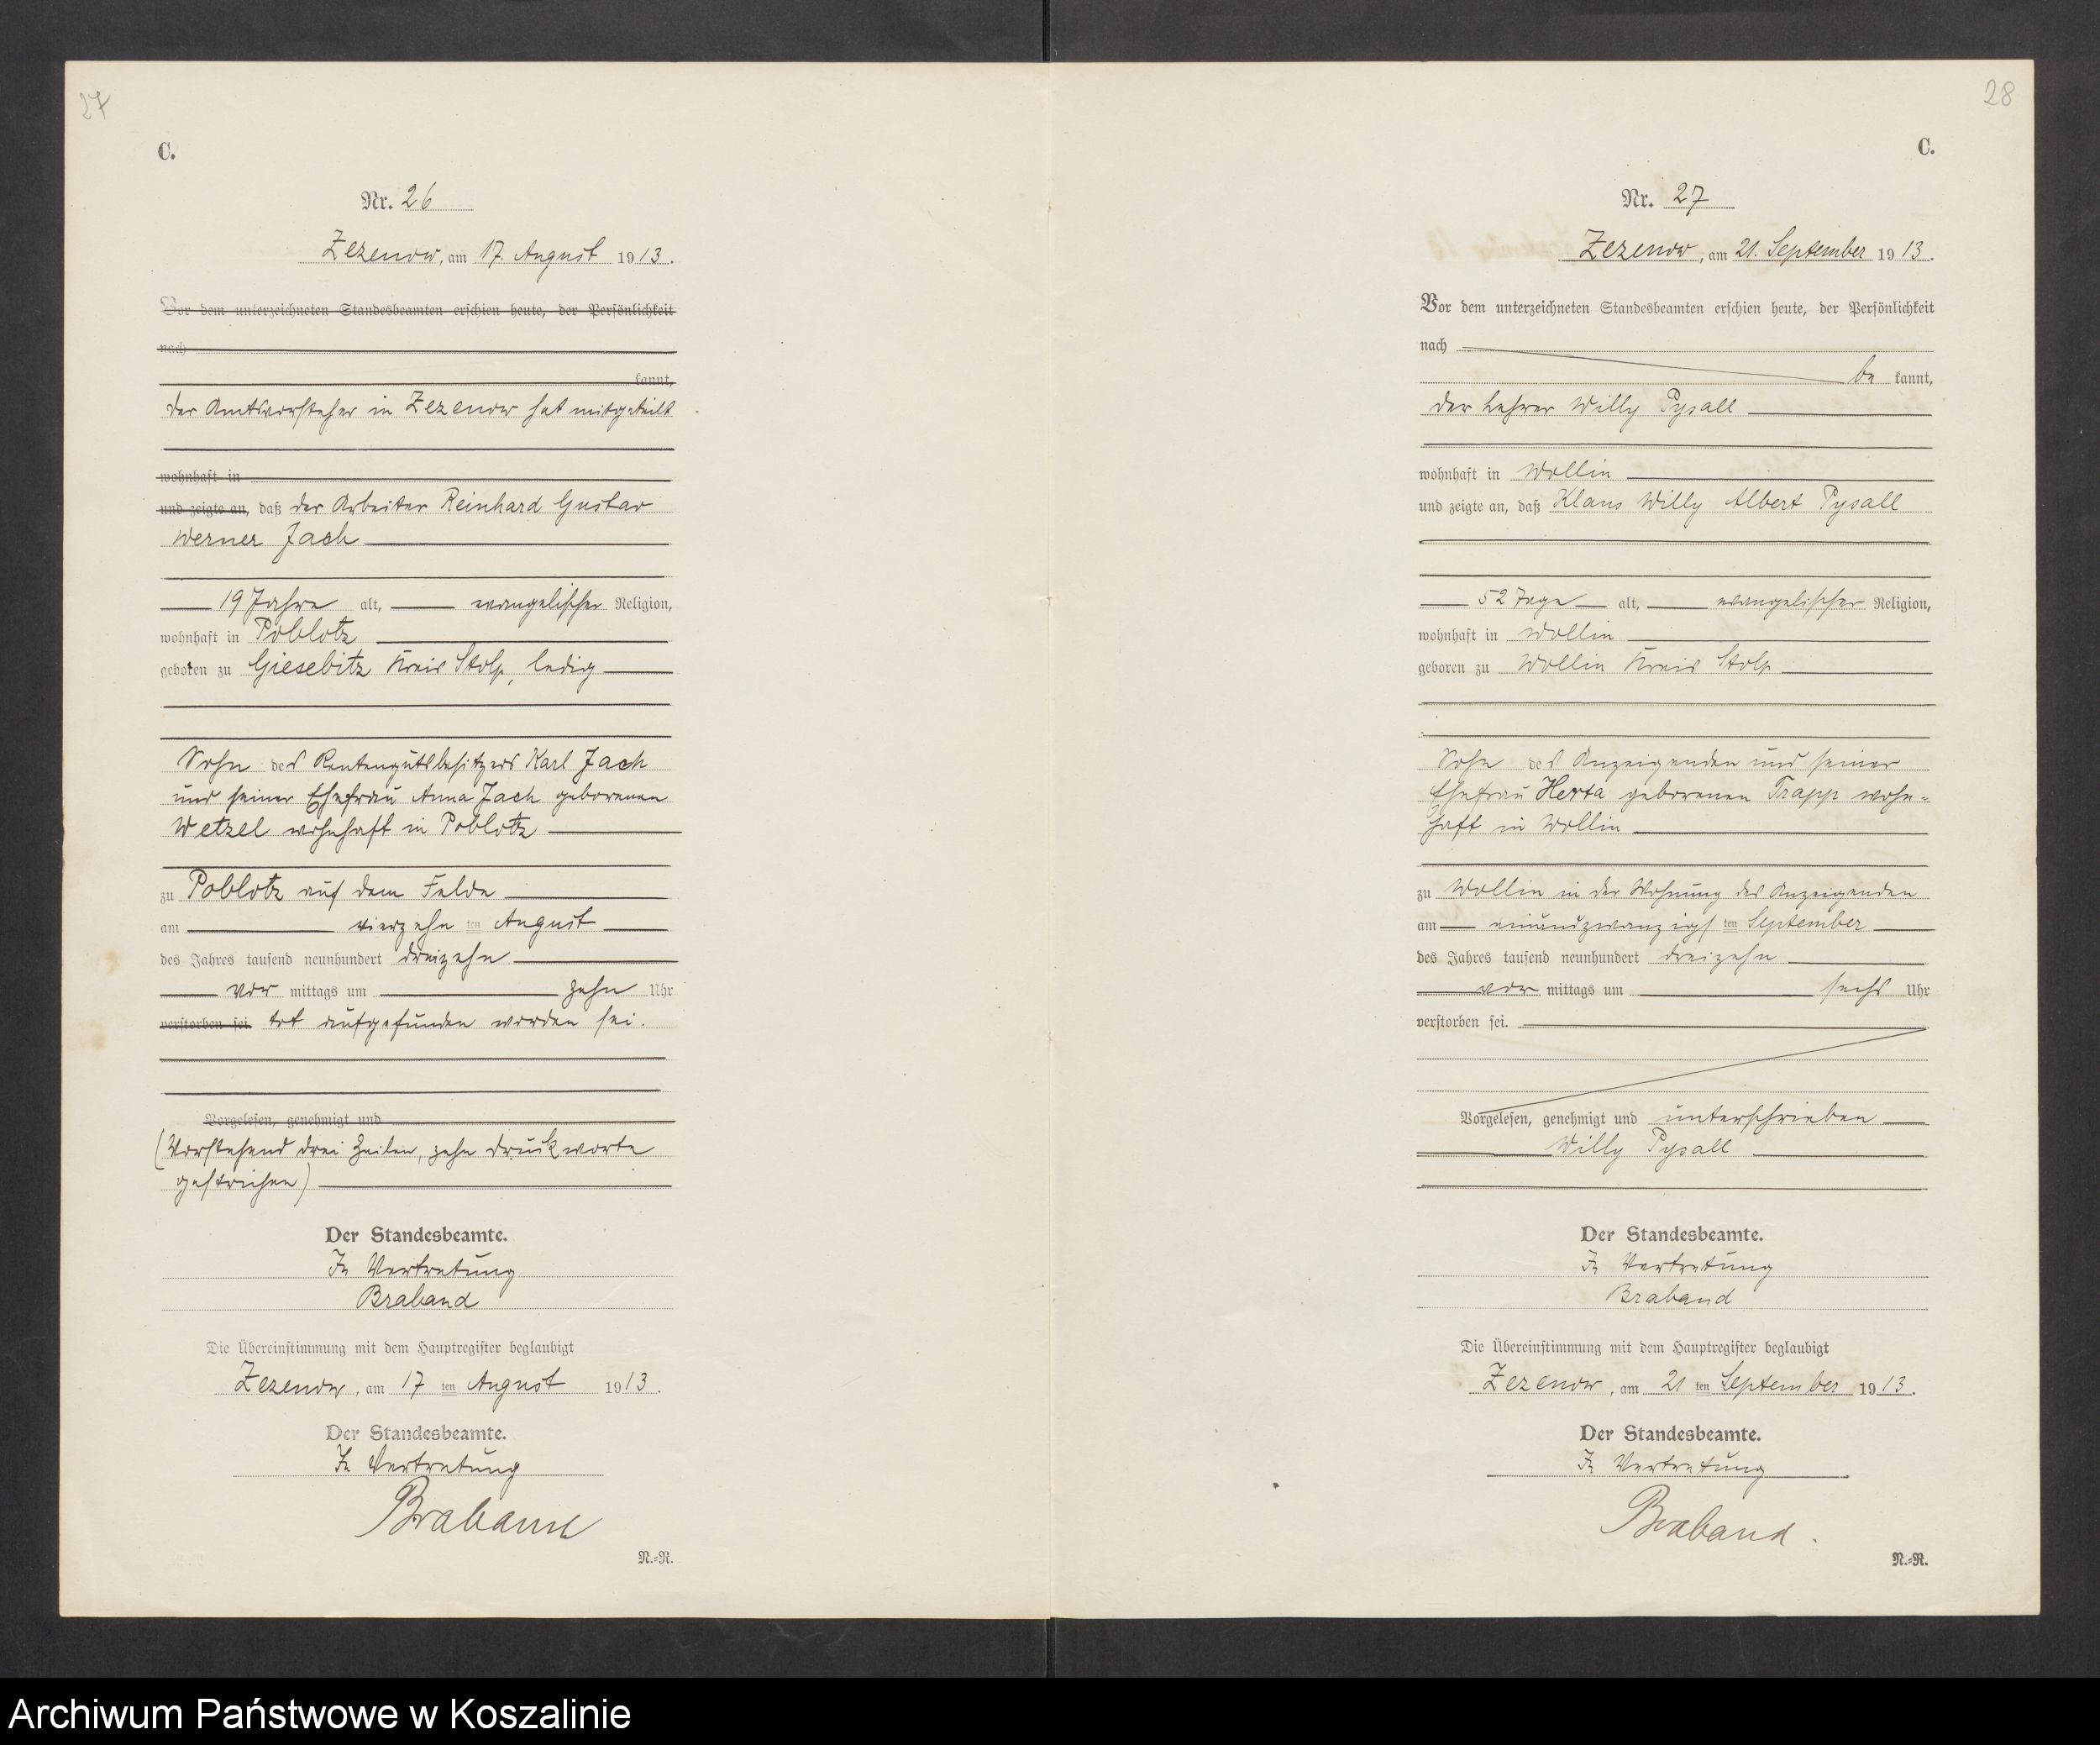 27
C.
Nr. 26
Zezenow, am 17. August 1913.
Vor dem unterzeichneten Standesbeamten erschien heute, der Persönlichkeit
nach
kannt,
der Amtsvorsteher in Zezenow hat mitgeteilt
wohnhaft in
und zeigte an, daß der Arbeiter Reinhard Gustav
Werner Jach
19 Jahre alt, evangelischer Religion,
wohnhaft in Poblotz
geboren zu Giesebitz Kreis Stolp, ledig
Sohn des Rentengutsbesitzers Karl Jach
und seiner Ehefrau Anna Jach geborenen
Wetzel wohnhaft in Poblotz
zu Poblotz auf dem Felde
am vierzehn ten August
des Jahres tausend neunhundert dreizehn
vor mittags um zehn Uhr
verstorben sei. tot aufgefunden worden sei.
Vorgelesen, genehmigt und
(Vorstehend drei Zeilen, zehn Druckworte
gestrichen)
Der Standesbeamte.
In Vertretung
Braband
Die Übereinstimmung mit dem Hauptregister beglaubigt
Zezenow, am 17 ten August 1913.
Der Standesbeamte.
In Vertretung
Braband
N.=R.
28
C.
Nr. 27
Zezenow, am 21. September 1913.
Vor dem unterzeichneten Standesbeamten erschien heute, der Persönlichkeit
nach
be kannt,
der Lehrer Willy Pysall
wohnhaft in Wollin
und zeigte an, daß Klaus Willy Albert Pysall
52 Tage alt, evangelischer Religion,
wohnhaft in Wollin
geboren zu Wollin Kreis Stolp
Sohn des Anzeigenden und seiner
Ehefrau Herta geborenen Trapp wohn-
haft in Wollin
zu Wollin in der Wohnung des Anzeigenden
am einundzwanzigs ten September
des Jahres tausend neunhundert dreizehn
vor mittags um sechs Uhr
verstorben sei.
Vorgelesen, genehmigt und unterschrieben
Willy Pysall
Der Standesbeamte.
In Vertretung
Braband
Die Übereinstimmung mit dem Hauptregister beglaubigt
Zezenow, am 21 ten September 1913.
Der Standesbeamte.
In Vertretung
Braband.
N.=R.
Archiwum Państwowe w Koszalinie